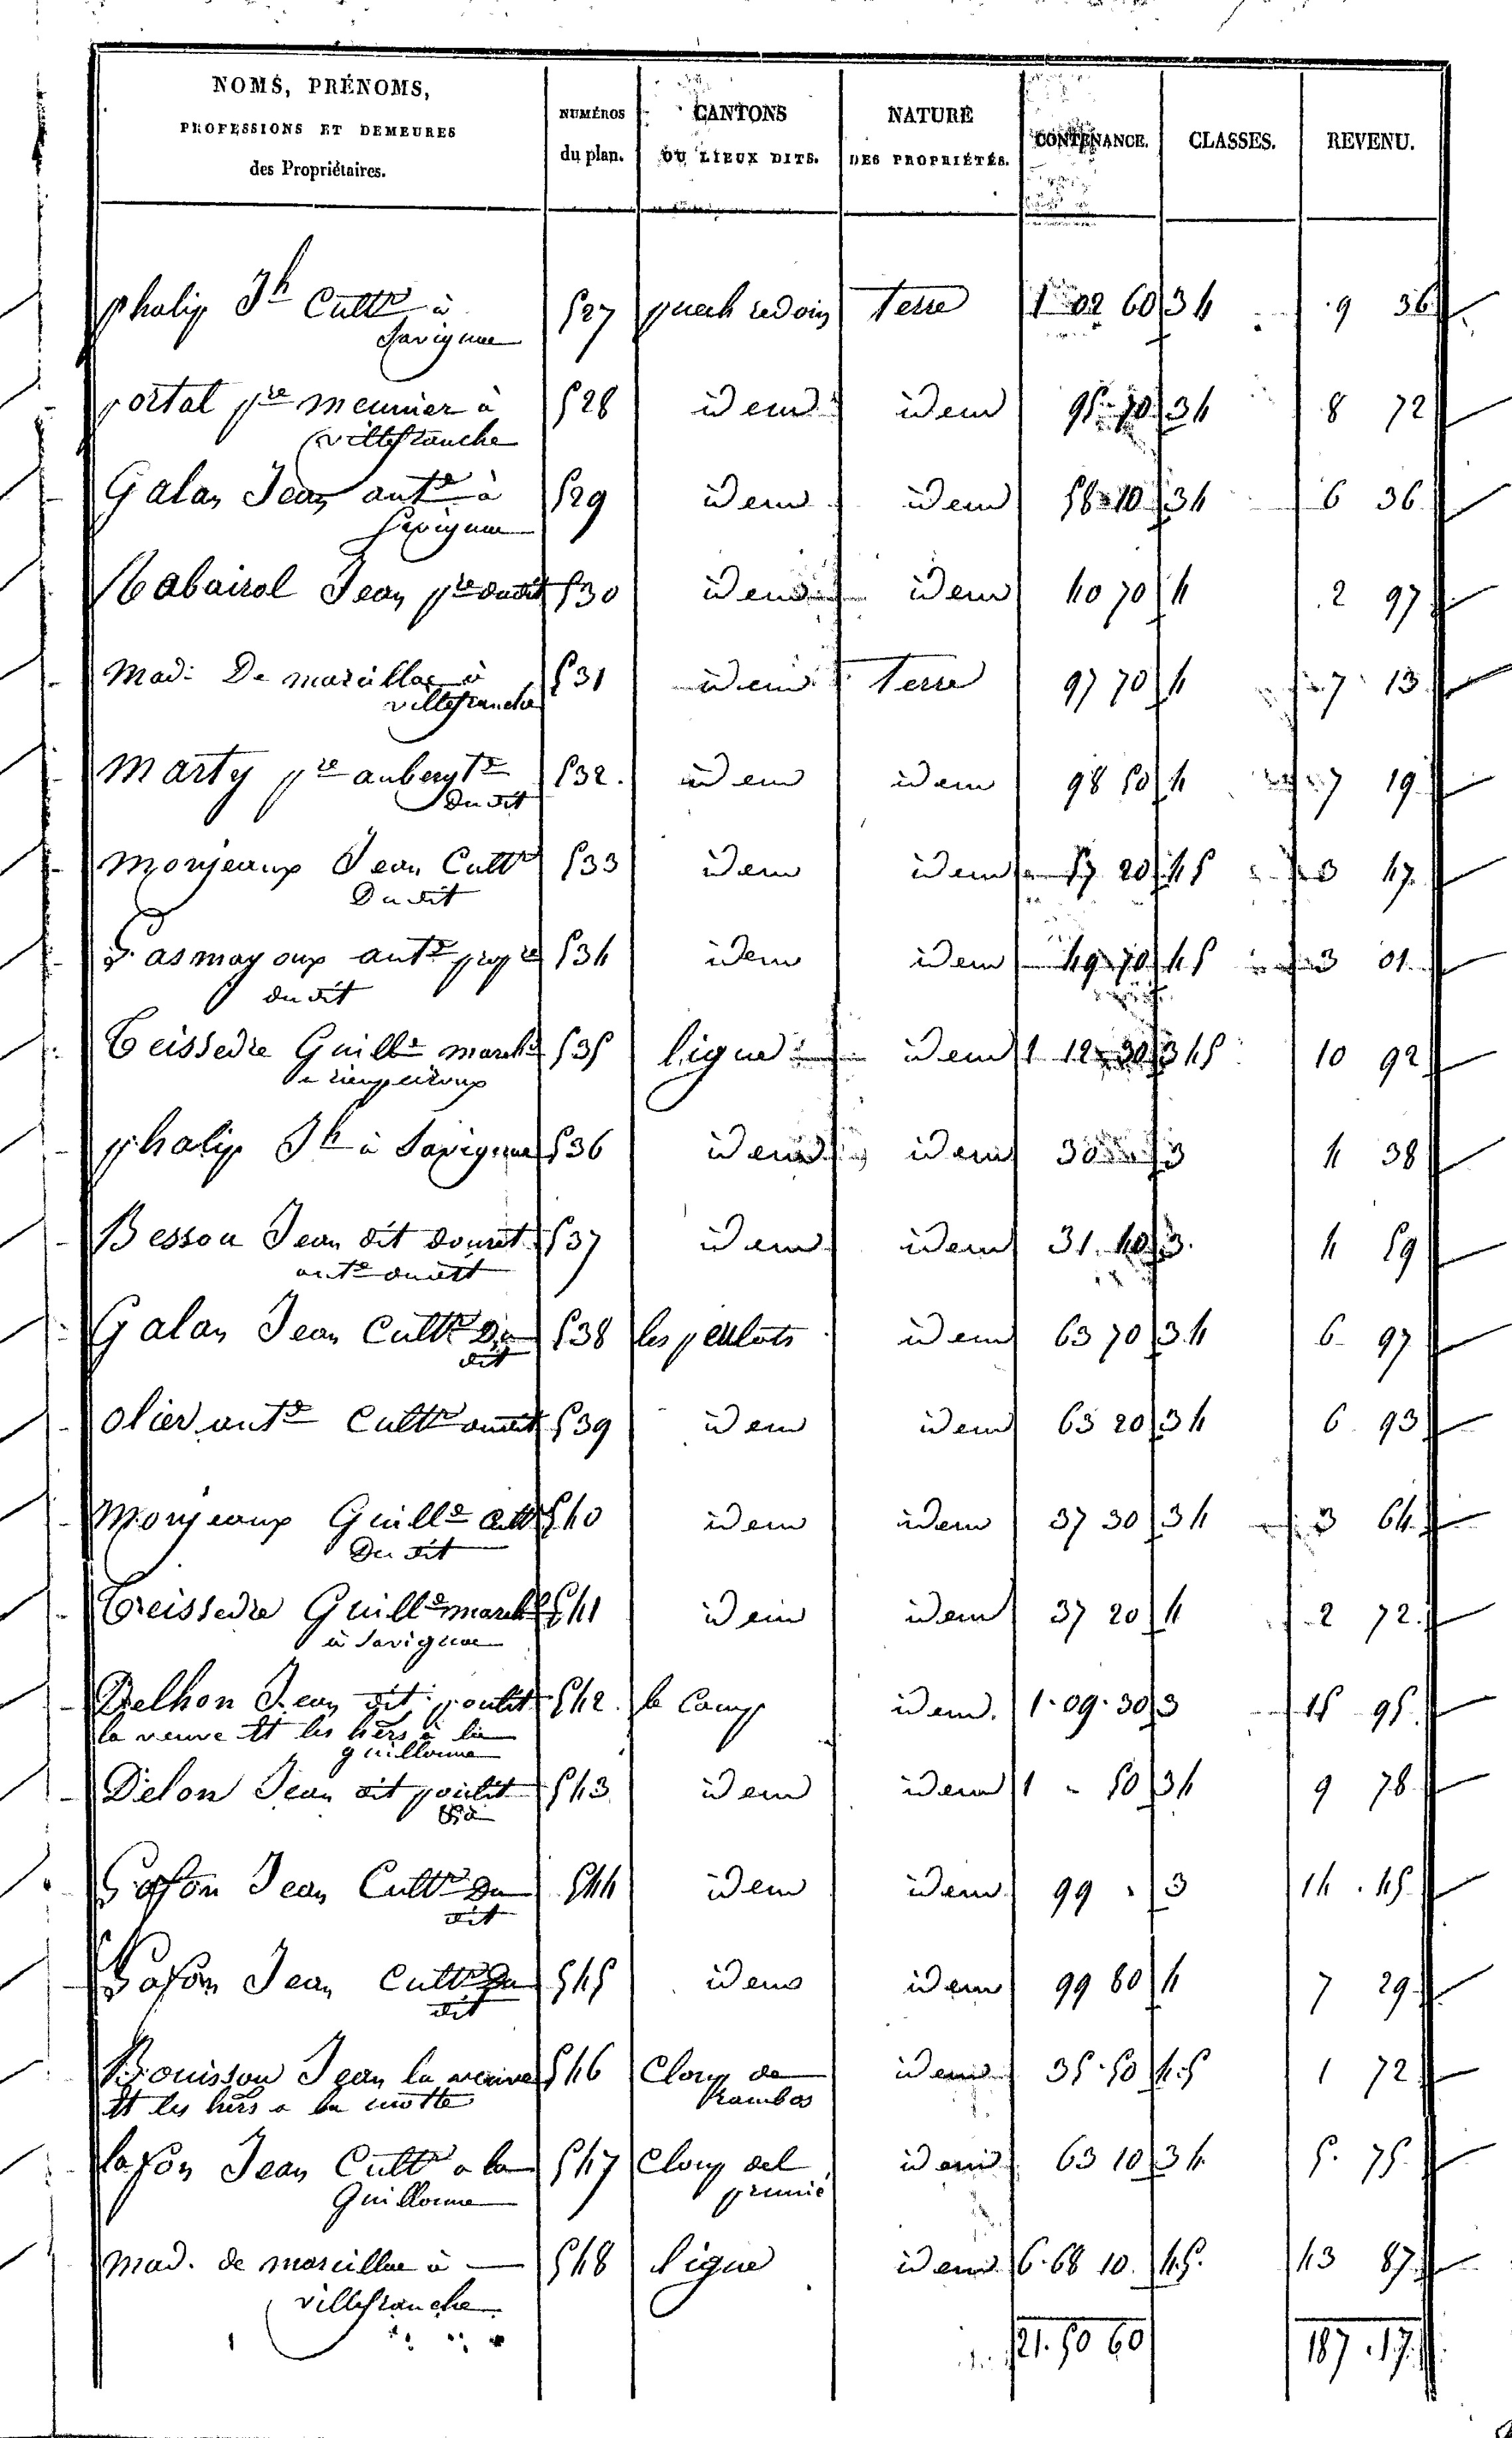 NOMS, PRÉNOMS,
PROFESSIONS ET DEMEURES
des Propriétaires.
NUMÉROS
du plan.
CANTONS
OU LIEUX DITS.
NATURE
DES PROPRIÉTÉS.
CONTENANCE.
CLASSES.
REVENU.
phalip Jh Cultr à 527 puech redoin Terre 1 02 60 3 4 9 36
Savignac
portal pre meunier à 528 idem idem 95 70 3 4 8 72
villefranche
Galan Jean ante à 529 idem idem 58 10 3 4 6 36
Savignac
Jean pre dudit 530 idem idem 40 70 4 2 97
Mad. De marcillac à 531 idem Terre 97 70 4 7 13
villefranche
Marty pre aubergte 532. idem idem 98 50 4 7 19
Du dit
Monjeaux Jean Cultr 533 idem idem 57 20 4 5 3 47
Du dit
Lasmayoux ante propre 534 idem idem 49 70 4 5 3 01
du dit
Teissedre Guille march 535 ligue idem 1 12 30 3 4 5 10 92
a rieupeiroux
phalip Jh à Savignac 536 idem idem 30 3 4 38
Besson Jean dit douret 537 idem idem 31 40 3. 4 59
ante dudit
Galan Jean Cultr Du 538 les idem 63 70 3.4 6 97
dit
olier ante Cultr dudit 539 idem idem 63 20 3 4 6 93
Monjeaux Guille Cultr 540 idem idem 37 30 3 4 3 64
Du dit
Teissedre Guille march 541 idem idem 37 20 4 2 72
à Savignac
Delhon Jean dit poulit 542 le Camp idem. 1.09.30 3 15 95
la veuve et les hers à la
guillonne
Delon Jean dit poulit 543 idem idem 1 - 50 3 4 9 78
Lafon Jean Cultr Du 544 idem idem 99 . 3 14.45
dit
Lafon Jean Cultr Du 545 idem idem 99 80 4 7 29
dit
Bouisson Jean la veuve 546 Cloup de idem 35.50 4.5 1 72
et les hers a la motte Rambos
lafon Jean Cultr a la 547 Cloup del idem 63 10 3 4 5. 75
Guillonne prunié
Mad. de marcillac à 548 ligue idem 6.68 10 4.5. 43 87
villefranche
21.50 60 187.17